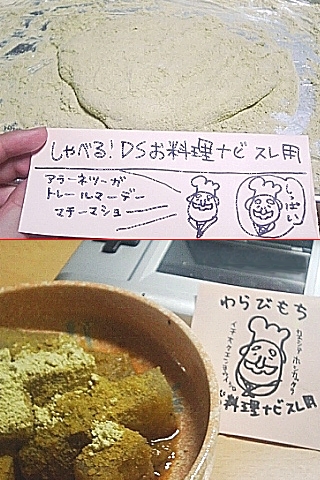 しゃべる!DSお料理ナビスレ用
アラーネッツーガ
トレールマーデー
マテーマショー
しっぱい
わらびもち
料理ナビスレ用